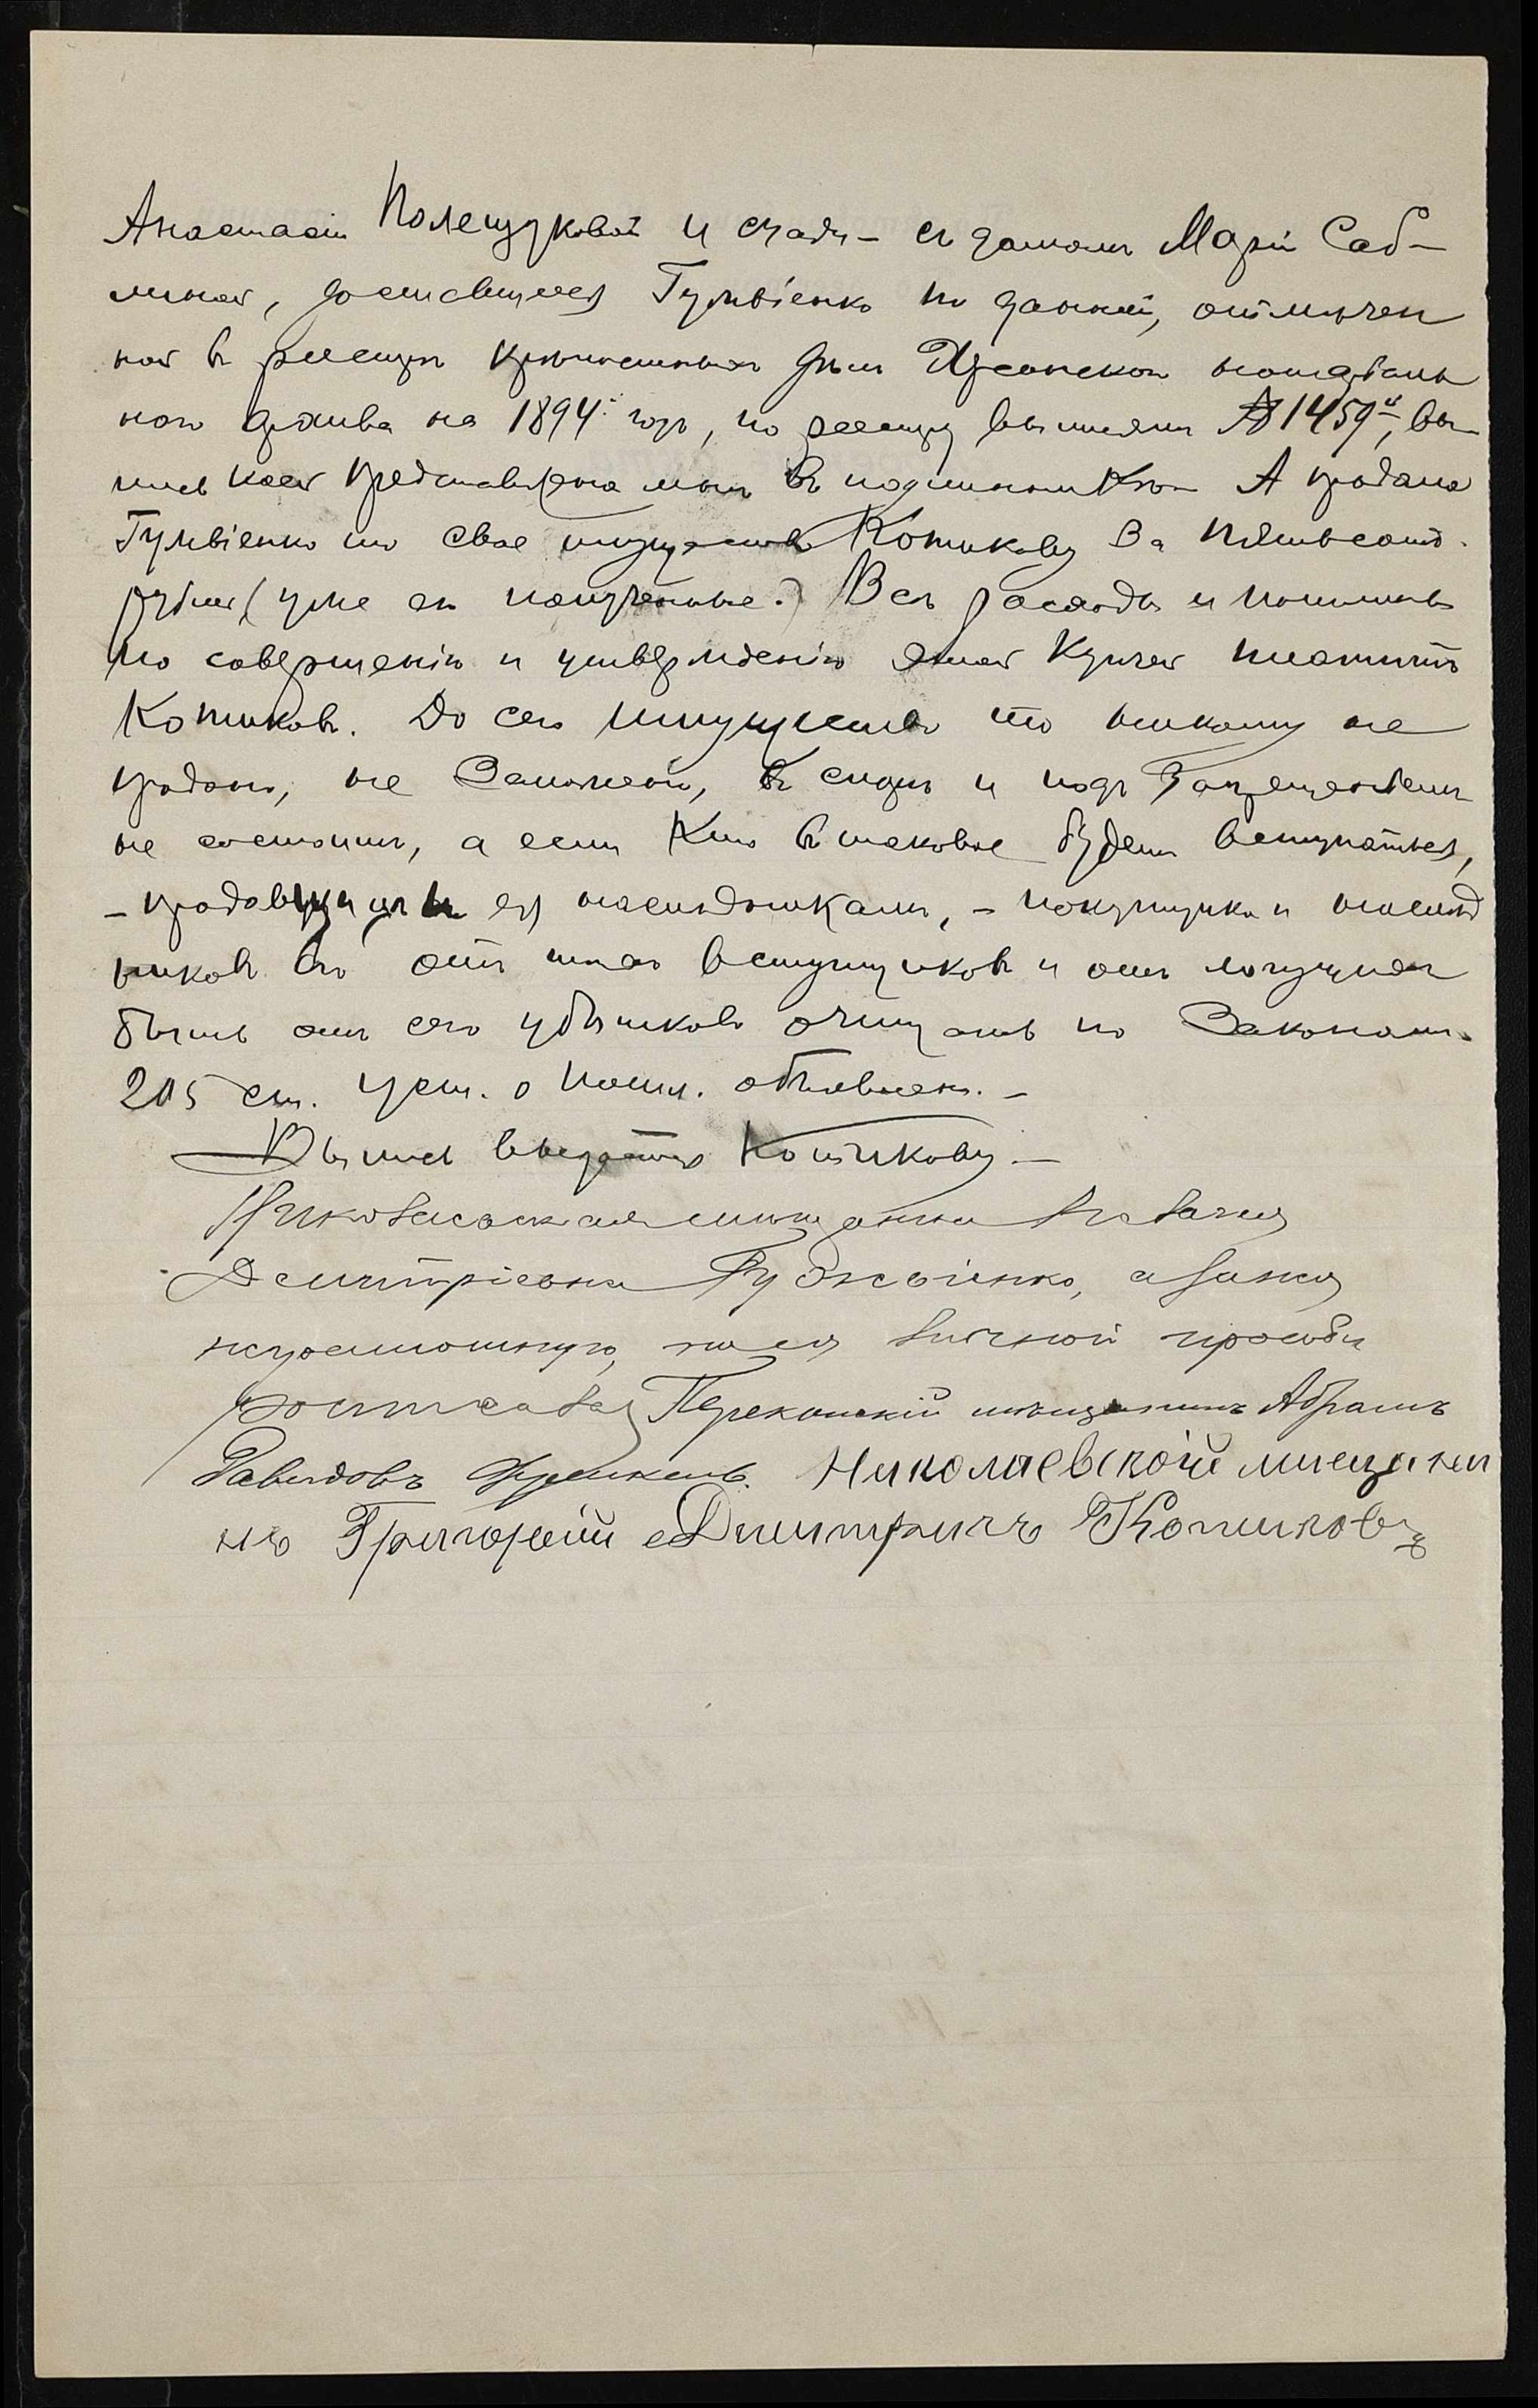 Анастасіи Полещуковой и сзади - съ домомъ Маріи Саб-
линой, доставшееся Гужвіенко по данной, отмѣчен
ной въ реестрѣ крѣпостныхъ дѣлъ Херсонскаго нотаріаль
наго архива на 1894й годъ, по реестру выписямъ № 1459й, вы-
пись коей представлена мнѣ въ подлинникѣ. А продала
Гужвіенко то свое имущество Котикову за пятьсотъ
рублей (уже ею полученные.) Всѣ расходы и пошлины
по совершенію и утвержденію этой купчей платитъ
Котиковъ. До сего имущество то никому не
продано, не заложено, въ спорѣ и подъ запрещеніемъ
не состоитъ, а если кто въ таковое будетъ вступаться,
- продавщицѣ и ея наслѣдникамъ, - покупщика и наслѣд
никовъ его отъ тѣхъ вступщиковъ и отъ могущихъ
быть отъ сего убытковъ очищать по законамъ.
205 ст. уст. о пошл. объявлена. -
Выпись выдать Котикову -
Николаевская мѣщанка Наталія
Дмитріевна Гужвіенко, а за нея
неграмотную, по ея личной просьбѣ
росписался Перекопскій мѣщанинъ Абрамъ
Давидовъ Френкель. Николаевской мпещани
нъ Григорій Дмитричъ Котиковъ